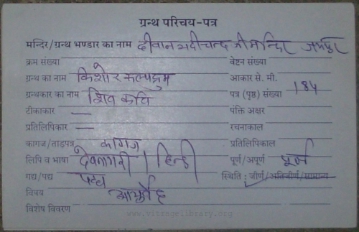 ग्रन्थ परिचय-पत्र
मन्दिर/ग्रन्थ भण्डार का नाम दीवान बधीचन्द जी मन्दिर जयपुर
क्रम संख्या वेष्टन संख्या
ग्रन्थ का नाम किशोर कल्पद्रुम आकार से. मी.
ग्रन्थकार का नाम शिव कवि पत्र (पृष्ठ) संख्या 184
टीकाकार — पंक्ति अक्षर
प्रतिलिपिकार — रचनाकाल
कागज/ताड़पत्र कागज प्रतिलिपिकाल
लिपि व भाषा देवनागरी । हिन्दी पूर्ण/अपूर्ण पूर्ण
गद्य/पद्य पद्य स्थिति : जीर्ण/अतिजीर्ण/सामान्य
विषय आयुर्वेद
विशेष विवरण